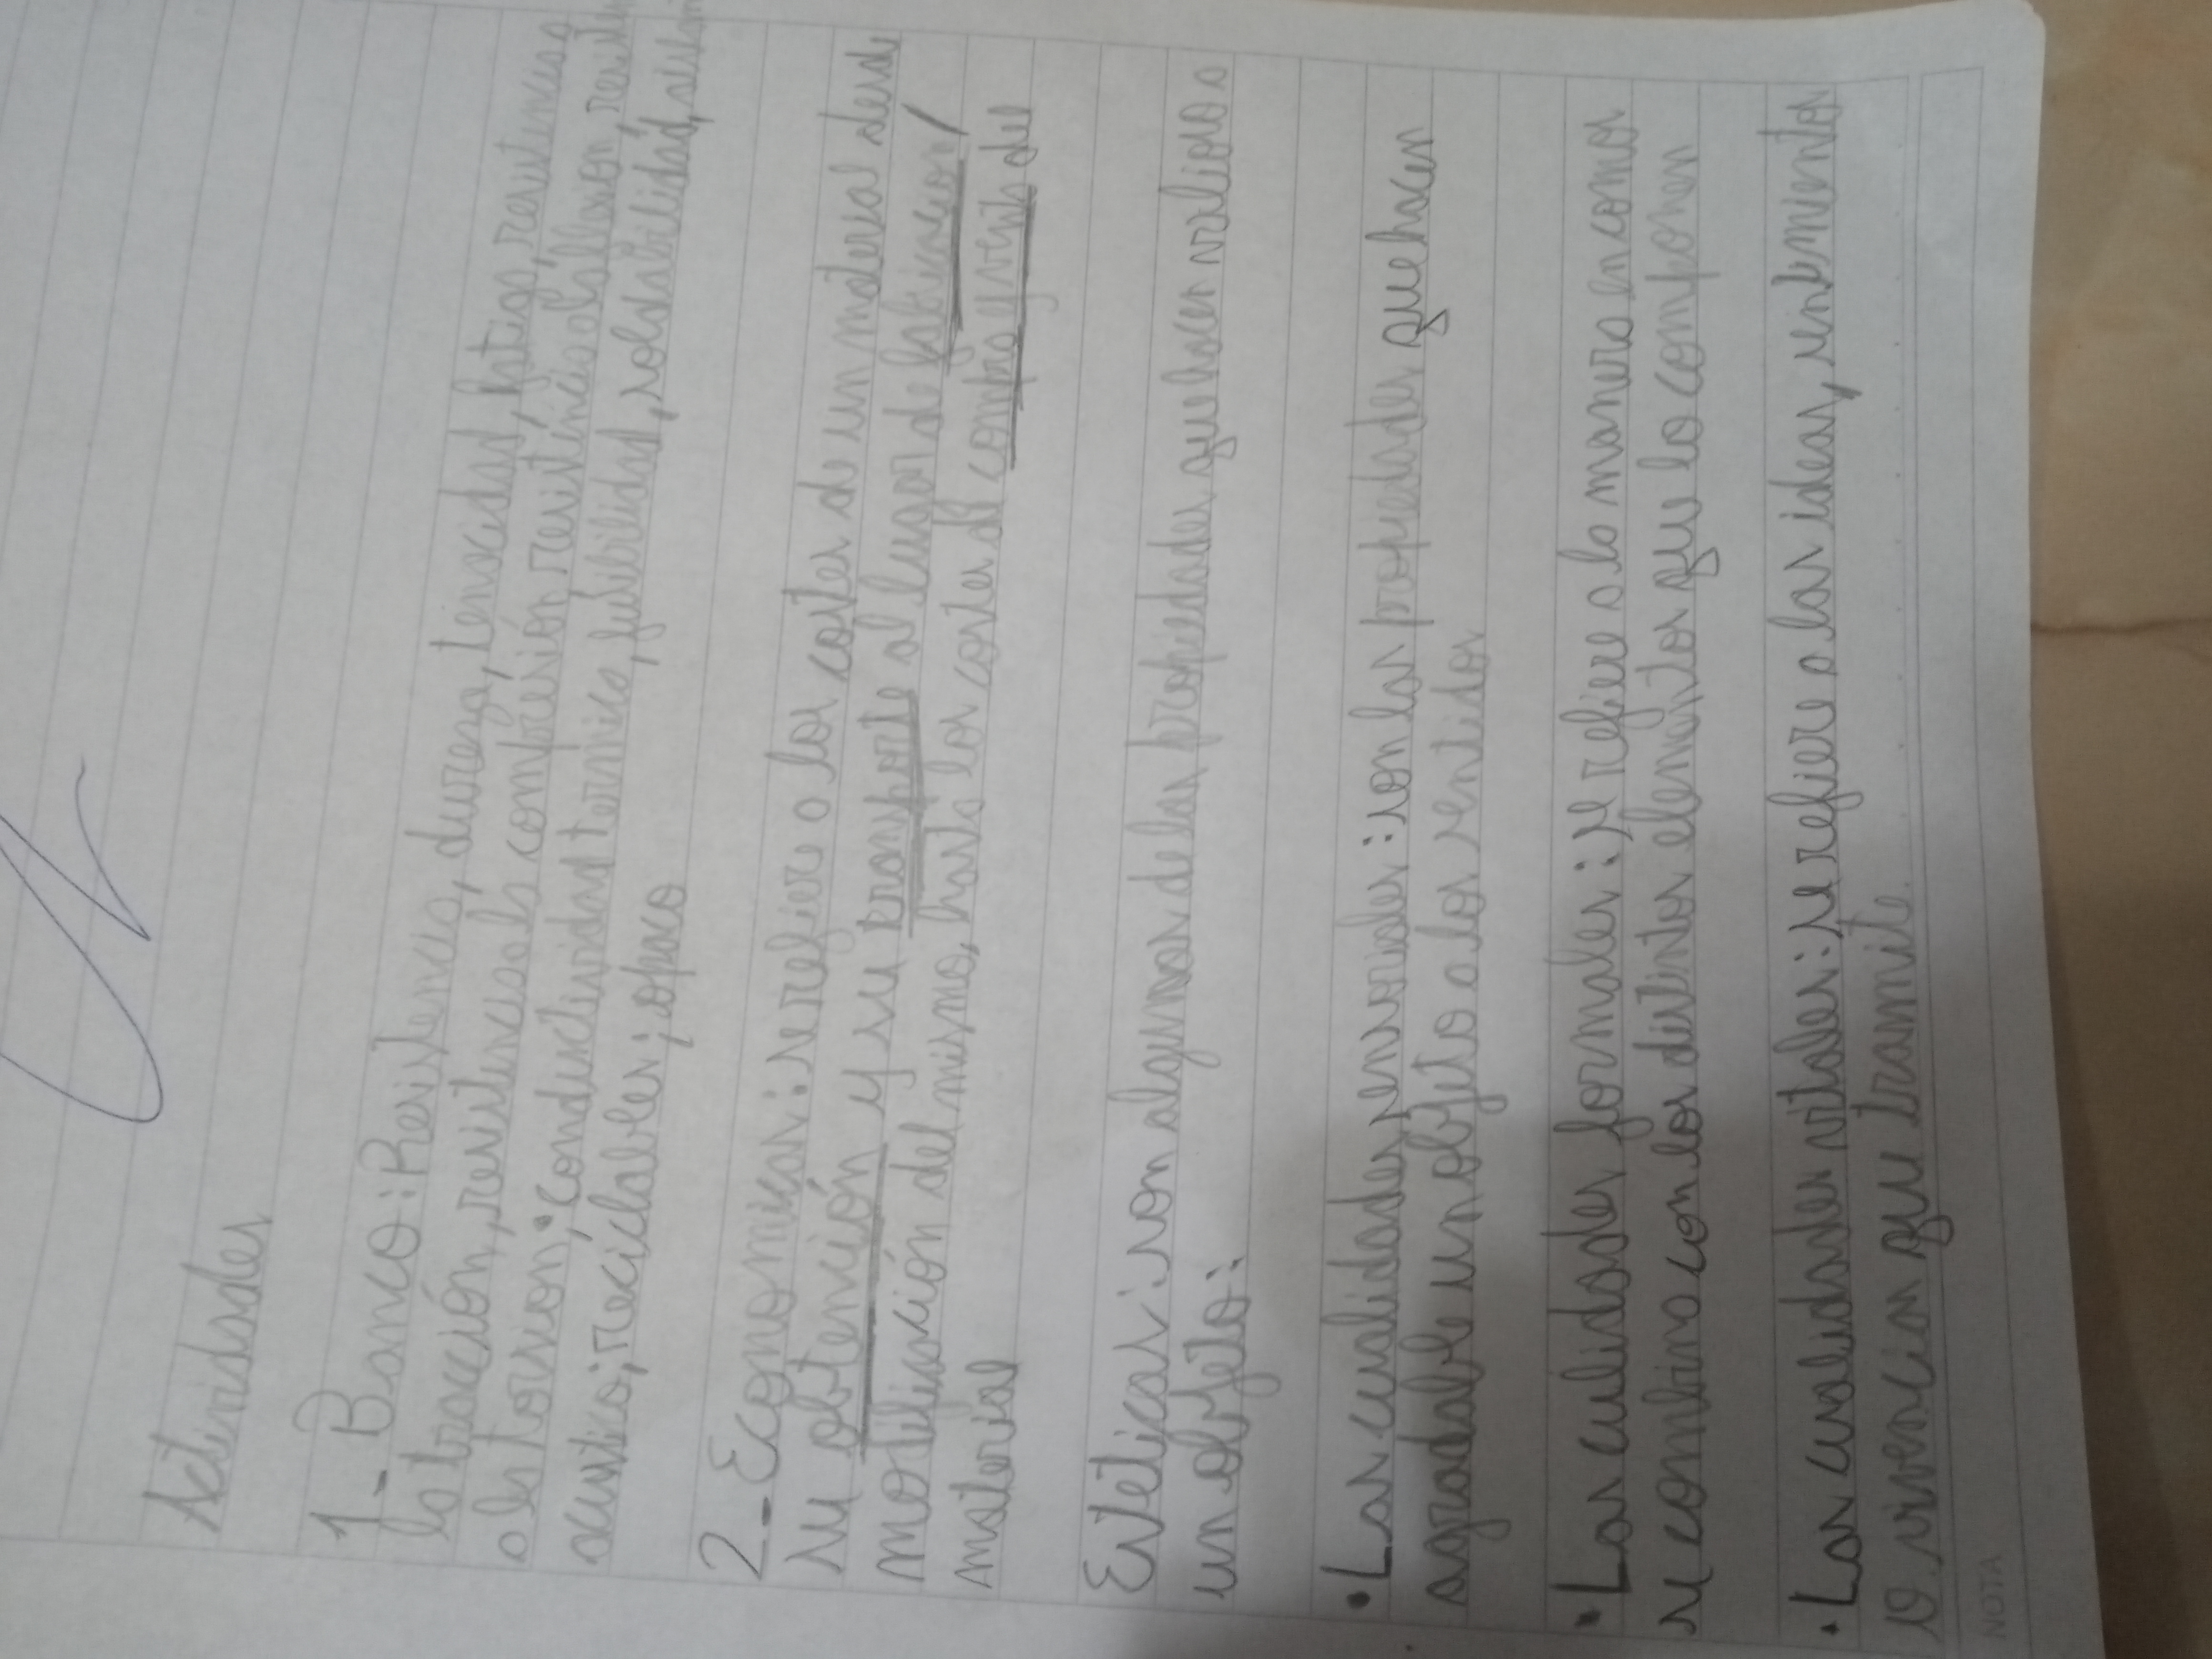 Actividades
1- Banco: Resistencia, dureza, tenacidad, fatiga, resistencia a
la tracción, resistencia a la compresión resistencia a la flexion, resist
a la torsion. conductividad termica, fusibilidad, soldabilidad, aislan
acustico; reciclables; opaco
2- Economicas: se refiere a los costes de un material desde
su obtención y su transporte al lugar de fabricacion/
modificación del mismo, hasta los costes de compra y venta del
material
Esteticas: son algunas de las propiedades que hacen valioso a
un objeto:
• Las cualidades sensoriales: son las propiedades que hacen
agradable un objeto a los sentidos
• Las culidades formales: se refiere a la manera en comor
se combina con los distintos elementos que lo componen
• Las cualidades vitales: se refiere a las ideas, sentimientos
o vivencias que tramite
NOTA